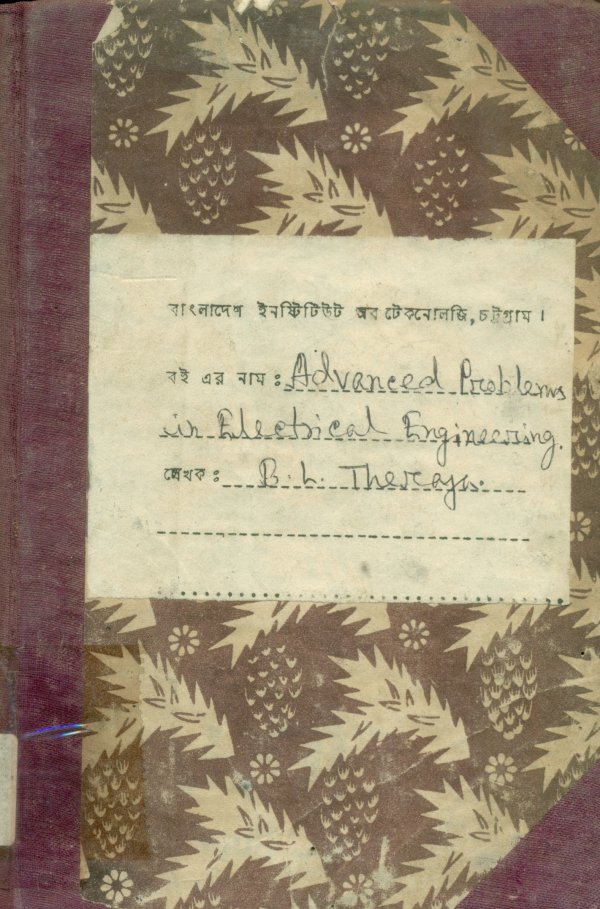 বাংলাদেশ ইনষ্টিটিউট অব টেকনোলজি, চট্টগ্রাম ।
বই এর নাম : Advanced Problems
in Electrical Engineering.
লেখক : B. L. Theraja.